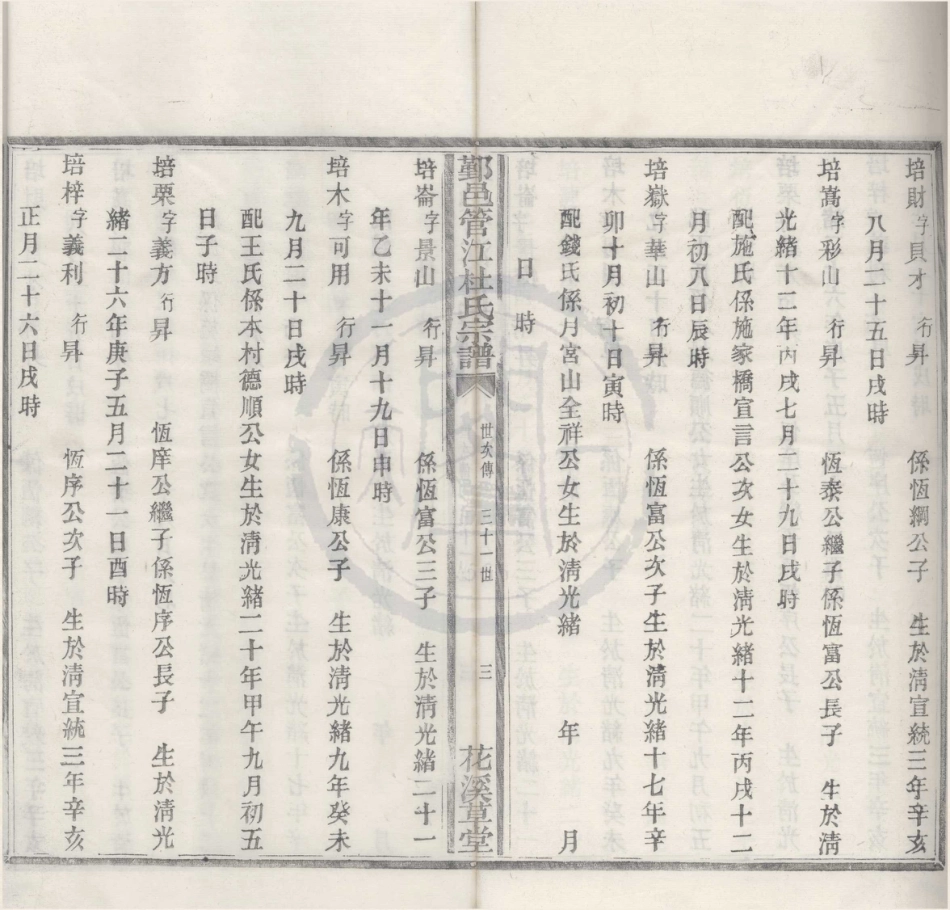 培財字貝才　行昇　係恆綱公子　生於淸宣統三年辛亥
八月二十五日戌時
培嵩字彩山　行昇　恆泰公繼子係恆富公長子　生於淸
光緒十二年丙戌七月二十九日戌時
配施氏係施家橋宣言公次女生於淸光緒十二年丙戌十二
月初八日辰時
培嶽字華山　行昇　係恆富公次子生於淸光緒十七年辛
卯十月初十日寅時
配錢氏係月宮山全祥公女生於淸光緒　年　月
日　時
鄞邑管江杜氏宗譜　世次傳　三十一世　三　花溪萱堂
培崙字景山　行昇　係恆富公三子　生於淸光緒二十一
年乙未十一月十九日申時
培木字可用　行昇　係恆康公子　生於淸光緒九年癸未
九月二十日戌時
配王氏係本村德順公女生於淸光緒二十年甲午九月初五
日子時
培栗字義方行昇　恆庠公繼子係恆序公長子　生於淸光
緒二十六年庚子五月二十一日酉時
培梓字義利　行昇　恆序公次子　生於淸宣統三年辛亥
正月二十六日戌時